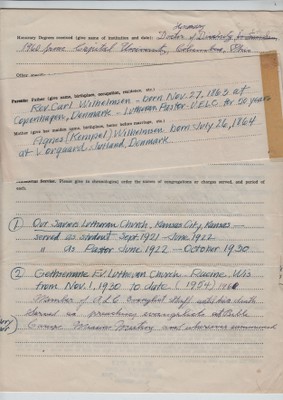 Honorary Degrees received (give name of institution and date): Honorary Doctor of Divinity
1960 from Capital University, Columbus, Ohio
Other
Parents: Father (give name, birthplace, occupation, residence, etc.)
Rev. Carl Wilhelmsen - born Nov. 27, 1863 at
Copenhagen, Denmark - Lutheran Pastor U.E.L.C. for 50 years
Mother (give her maiden name, birthplace, home before marriage, etc.)
Agnes (Kempel) Wilhelmsen born July 26, 1864
at Vorgaard, Jutland, Denmark
Ministerial Service. Please give in chronological order the names of congregations or charges served, and period of
each.
① Our Savior Lutheran Church, Kansas City, Kansas —
served as student Sept. 1921 - June 1922
" as Pastor June 1922 - October 1930
② Gethsemane Ev. Lutheran Church - Racine, Wis
from Nov. 1, 1930 to date (1954)
Member of Evangelist Staff until his death
Served as preaching evangelist at Bible
Camps, Mission Meetings and wherever summoned